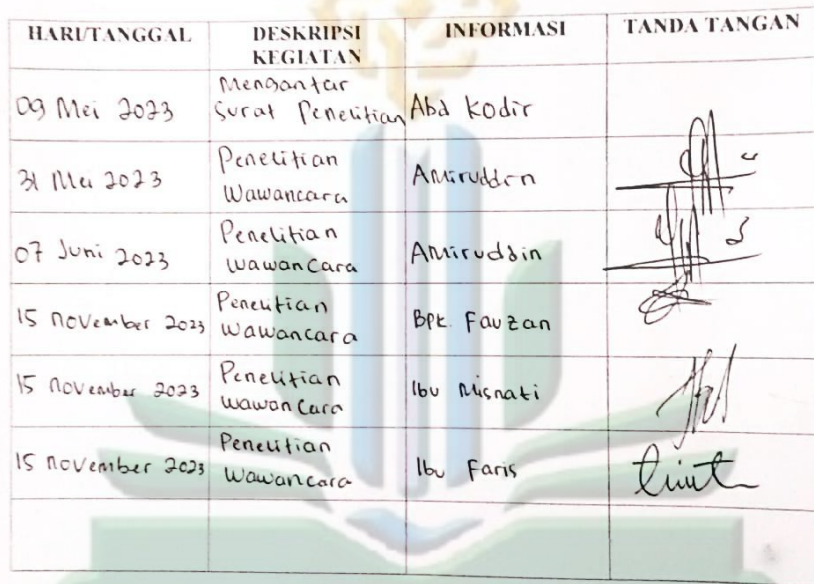 HARI/TANGGAL DESKRIPSI KEGIATAN INFORMASI TANDA TANGAN
09 Mei 2023 Mengantar Surat Penelitian Abd Kodir
31 Mei 2023 Penelitian Wawancara Amiruddin
07 Juni 2023 Penelitian Wawancara Amiruddin
15 November 2023 Penelitian Wawancara Bpk. Fauzan
15 November 2023 Penelitian Wawancara Ibu Misnati
15 November 2023 Penelitian Wawancara Ibu Faris